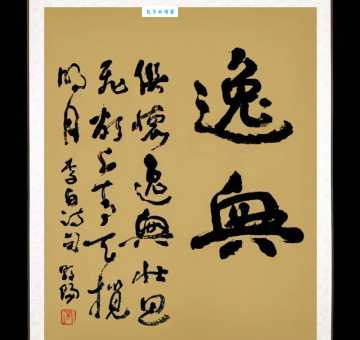 逸興
俱懷逸興壯思
飛欲上青天攬
明月 李白詩句